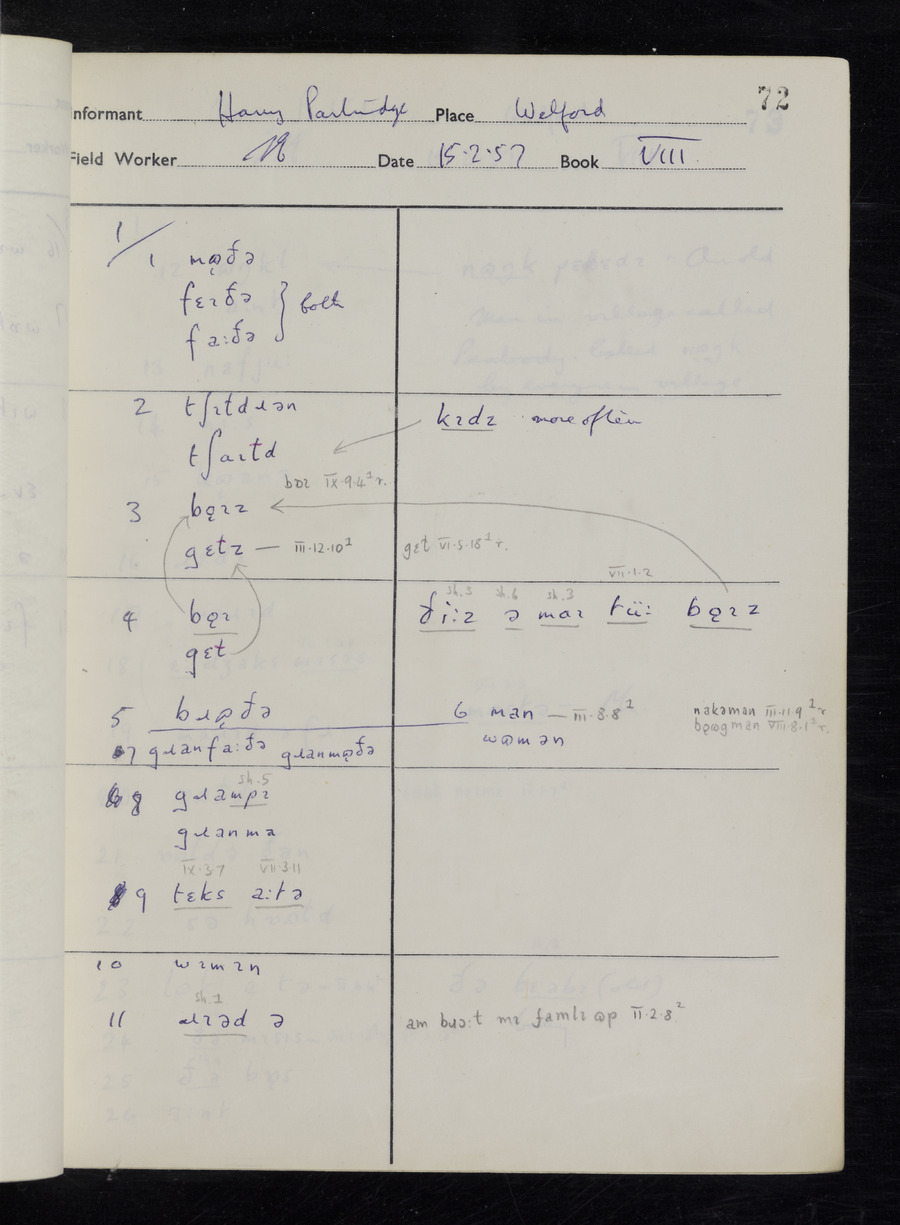 72
Informant Harry Partridge Place Welford
Field Worker Date 15·2·57 Book VIII
1/
1 mɷ̨ðə
fɛɪðə
fa:ðə } both
2 tʃɪtdɹən
tʃaɪtd
kɪdz more often
bɒɪ IX·9·4¹ r.
3 bǫɪz
gɛtz — III·12·10¹
gɛt VI·5·18¹ r.
VII·1·2
sh.3 sh.6 sh.3
4 bǫɪ
ði:z ə maɪ tü: bǫɪz
gɛt
5 bɹɷ̨ðə
6 man — III·8·8¹
nakəman III·11·9¹ r
bɷ̨gman VIII·8·1² r.
wɷmən
7 gɹanfa:ðə gɹanmɷ̨ðə
sh.5
8 gɹampɪ
gɹanma
IX·3·7 VII·3·11
9 tɛks a:tə
10 wɪmɪn
sh.1
11 ɹɪəd ə
am bɹɔ:t mɪ famlɪ ɷp II·2·8²